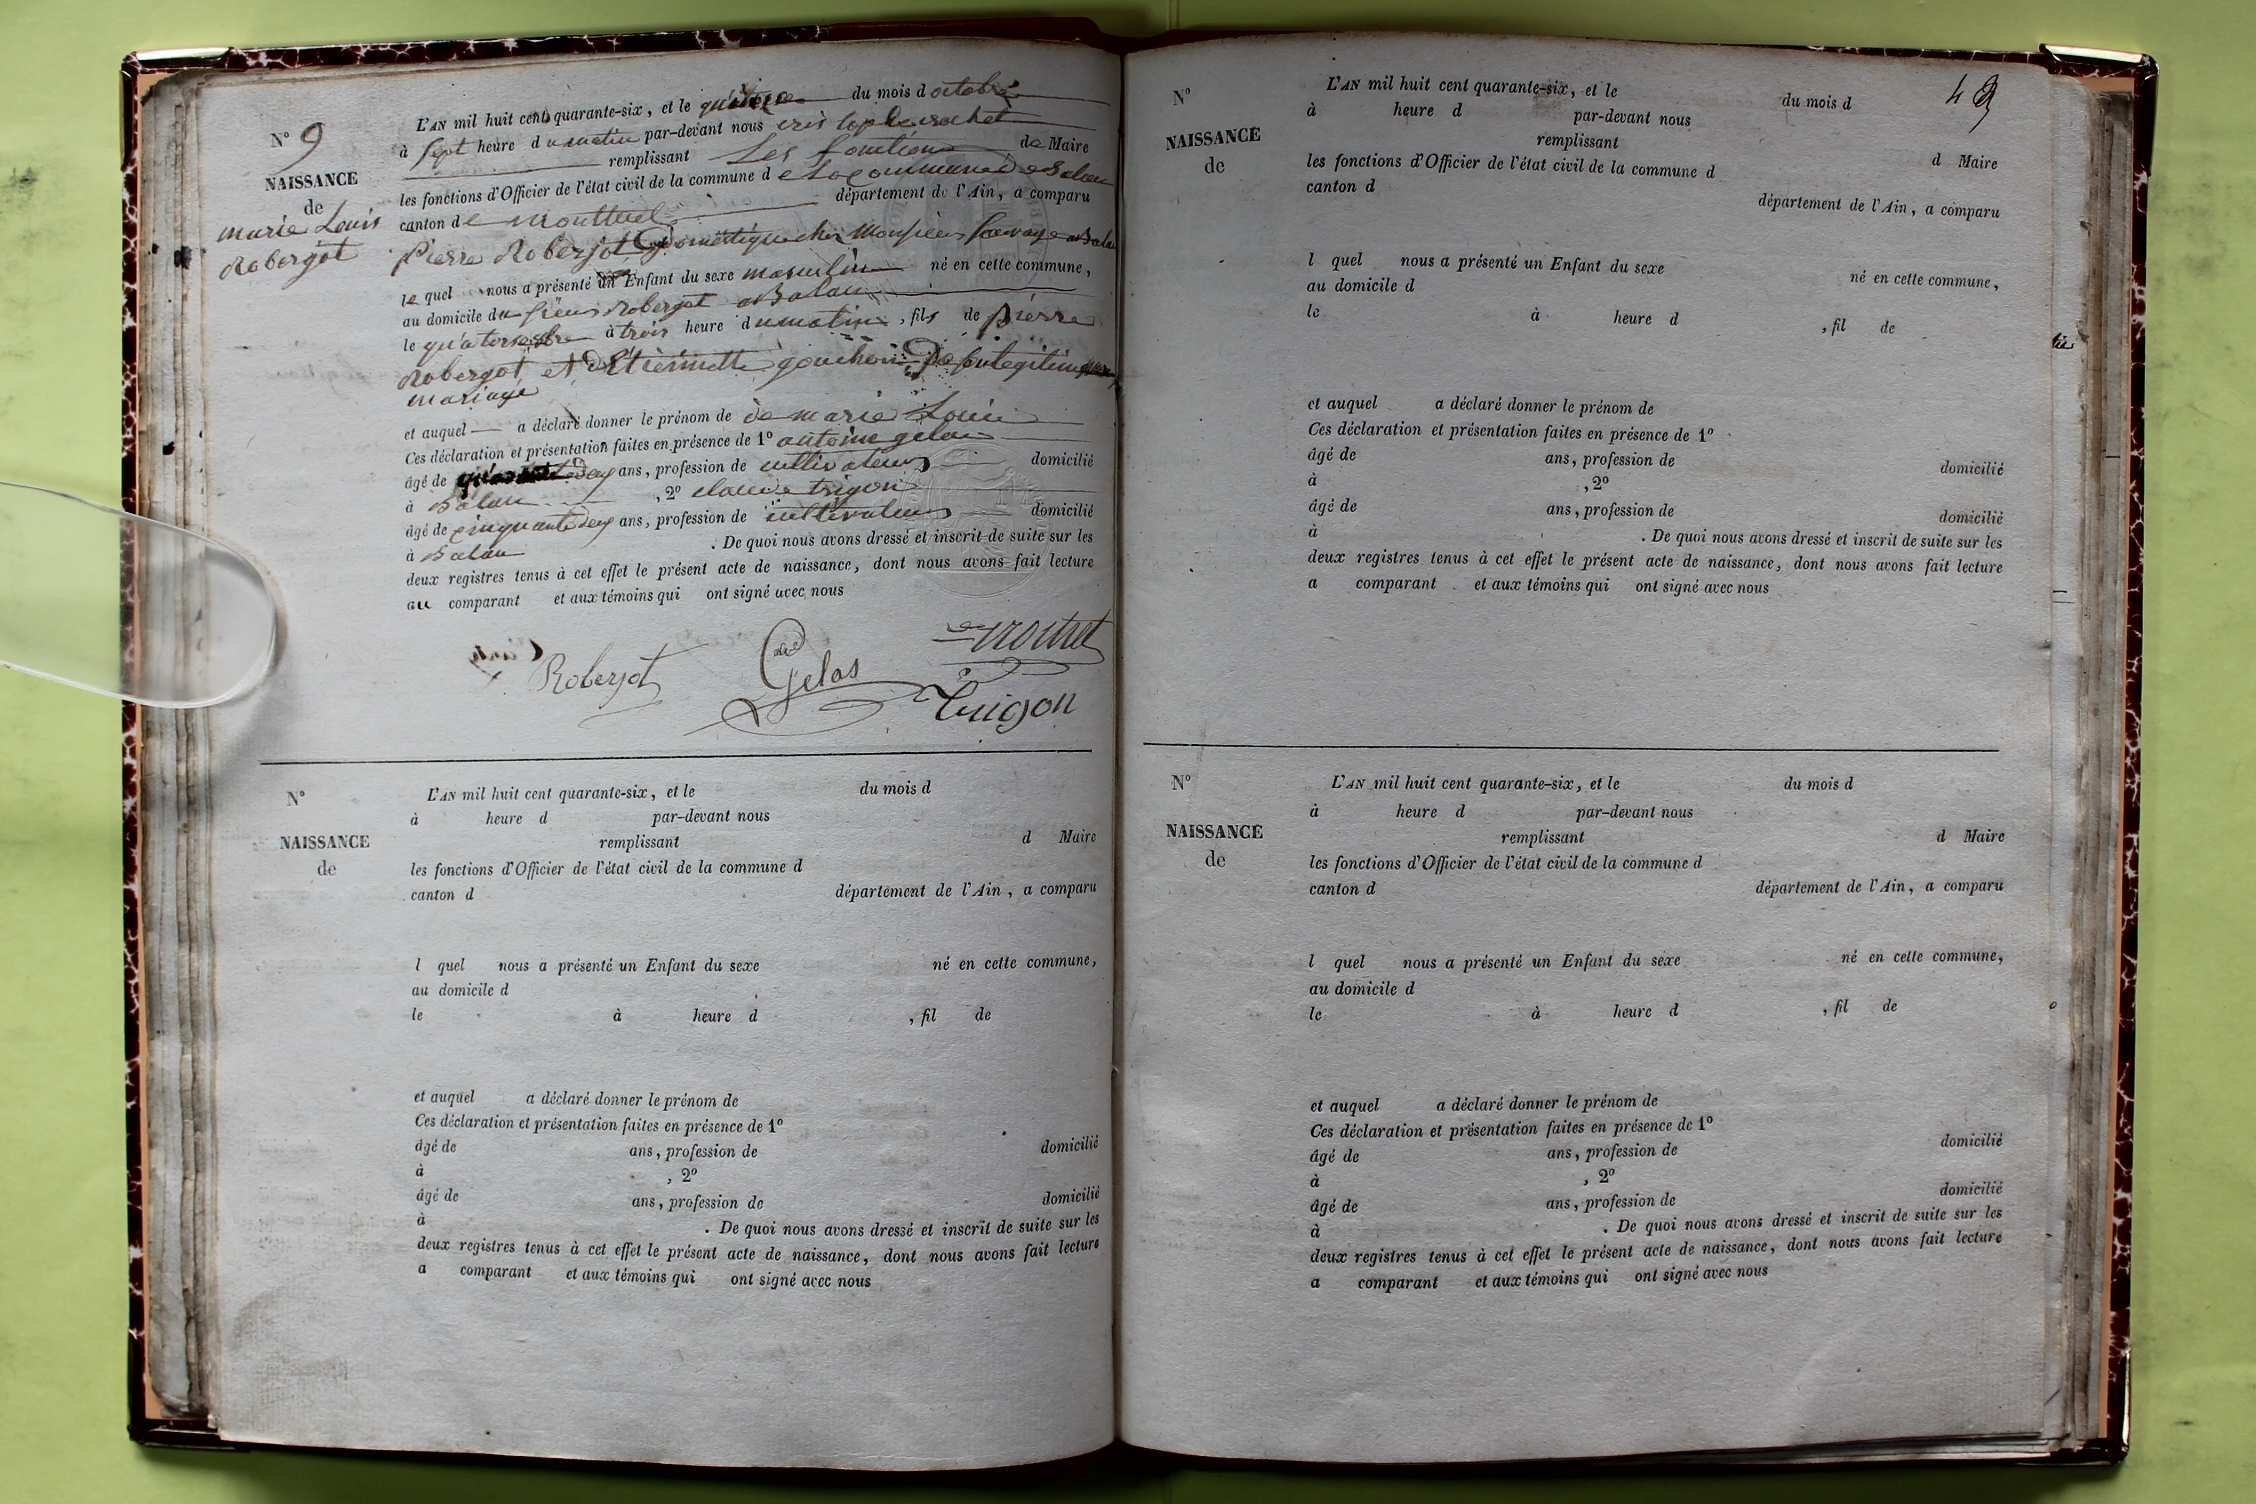 N° 9
NAISSANCE
de
marie Louis
Robergot
L'AN mil huit cent quarante-six, et le quinze du mois d octobre
à sept heure du matin par-devant nous rochet
remplissant Les fonctions de Maire
les fonctions d'Officier de l'état civil de la commune d e La commune de Balan
canton de montluel département de l'Ain, a comparu
Pierre Roberjot Domestique chez Monsieur Sauvage a Balan
le quel nous a présenté un Enfant du sexe masculin né en cette commune,
au domicile du sieur Robergot a Balan
le quatorze à trois heure du matin, fils de pierre
Robergot et d'Etiennette gouchon legitime
mariage
et auquel a déclaré donner le prénom de de marie Louis
Ces déclaration et présentation faites en présence de 1° antoine gelas
âgé de ans, profession de cultivateur domicilié
à Balan, 2° claude trigon
âgé de cinquante deux ans, profession de cultivateur domicilié
à Balan. De quoi nous avons dressé et inscrit de suite sur les
deux registres tenus à cet effet le présent acte de naissance, dont nous avons fait lecture
au comparant et aux témoins qui ont signé avec nous
rochet
Roberjot Gelas
Trigon
N°
NAISSANCE
de
L'AN mil huit cent quarante-six, et le du mois d
à heure d par-devant nous
remplissant d Maire
les fonctions d'Officier de l'état civil de la commune d
canton d département de l'Ain, a comparu
l quel nous a présenté un Enfant du sexe né en cette commune,
au domicile d
le à heure d , fil de
et auquel a déclaré donner le prénom de
Ces déclaration et présentation faites en présence de 1°
âgé de ans, profession de domicilié
à , 2°
âgé de ans, profession de domicilié
à . De quoi nous avons dressé et inscrit de suite sur les
deux registres tenus à cet effet le présent acte de naissance, dont nous avons fait lecture
a comparant et aux témoins qui ont signé avec nous
N°
NAISSANCE
de
L'AN mil huit cent quarante-six, et le du mois d
à heure d par-devant nous
remplissant d Maire
les fonctions d'Officier de l'état civil de la commune d
canton d département de l'Ain, a comparu
l quel nous a présenté un Enfant du sexe né en cette commune,
au domicile d
le à heure d , fil de
et auquel a déclaré donner le prénom de
Ces déclaration et présentation faites en présence de 1°
âgé de ans, profession de domicilié
à , 2°
âgé de ans, profession de domicilié
à . De quoi nous avons dressé et inscrit de suite sur les
deux registres tenus à cet effet le présent acte de naissance, dont nous avons fait lecture
a comparant et aux témoins qui ont signé avec nous
N°
NAISSANCE
de
L'AN mil huit cent quarante-six, et le du mois d
à heure d par-devant nous
remplissant d Maire
les fonctions d'Officier de l'état civil de la commune d
canton d département de l'Ain, a comparu
l quel nous a présenté un Enfant du sexe né en cette commune,
au domicile d
le à heure d , fil de
et auquel a déclaré donner le prénom de
Ces déclaration et présentation faites en présence de 1°
âgé de ans, profession de domicilié
à , 2°
âgé de ans, profession de domicilié
à . De quoi nous avons dressé et inscrit de suite sur les
deux registres tenus à cet effet le présent acte de naissance, dont nous avons fait lecture
a comparant et aux témoins qui ont signé avec nous